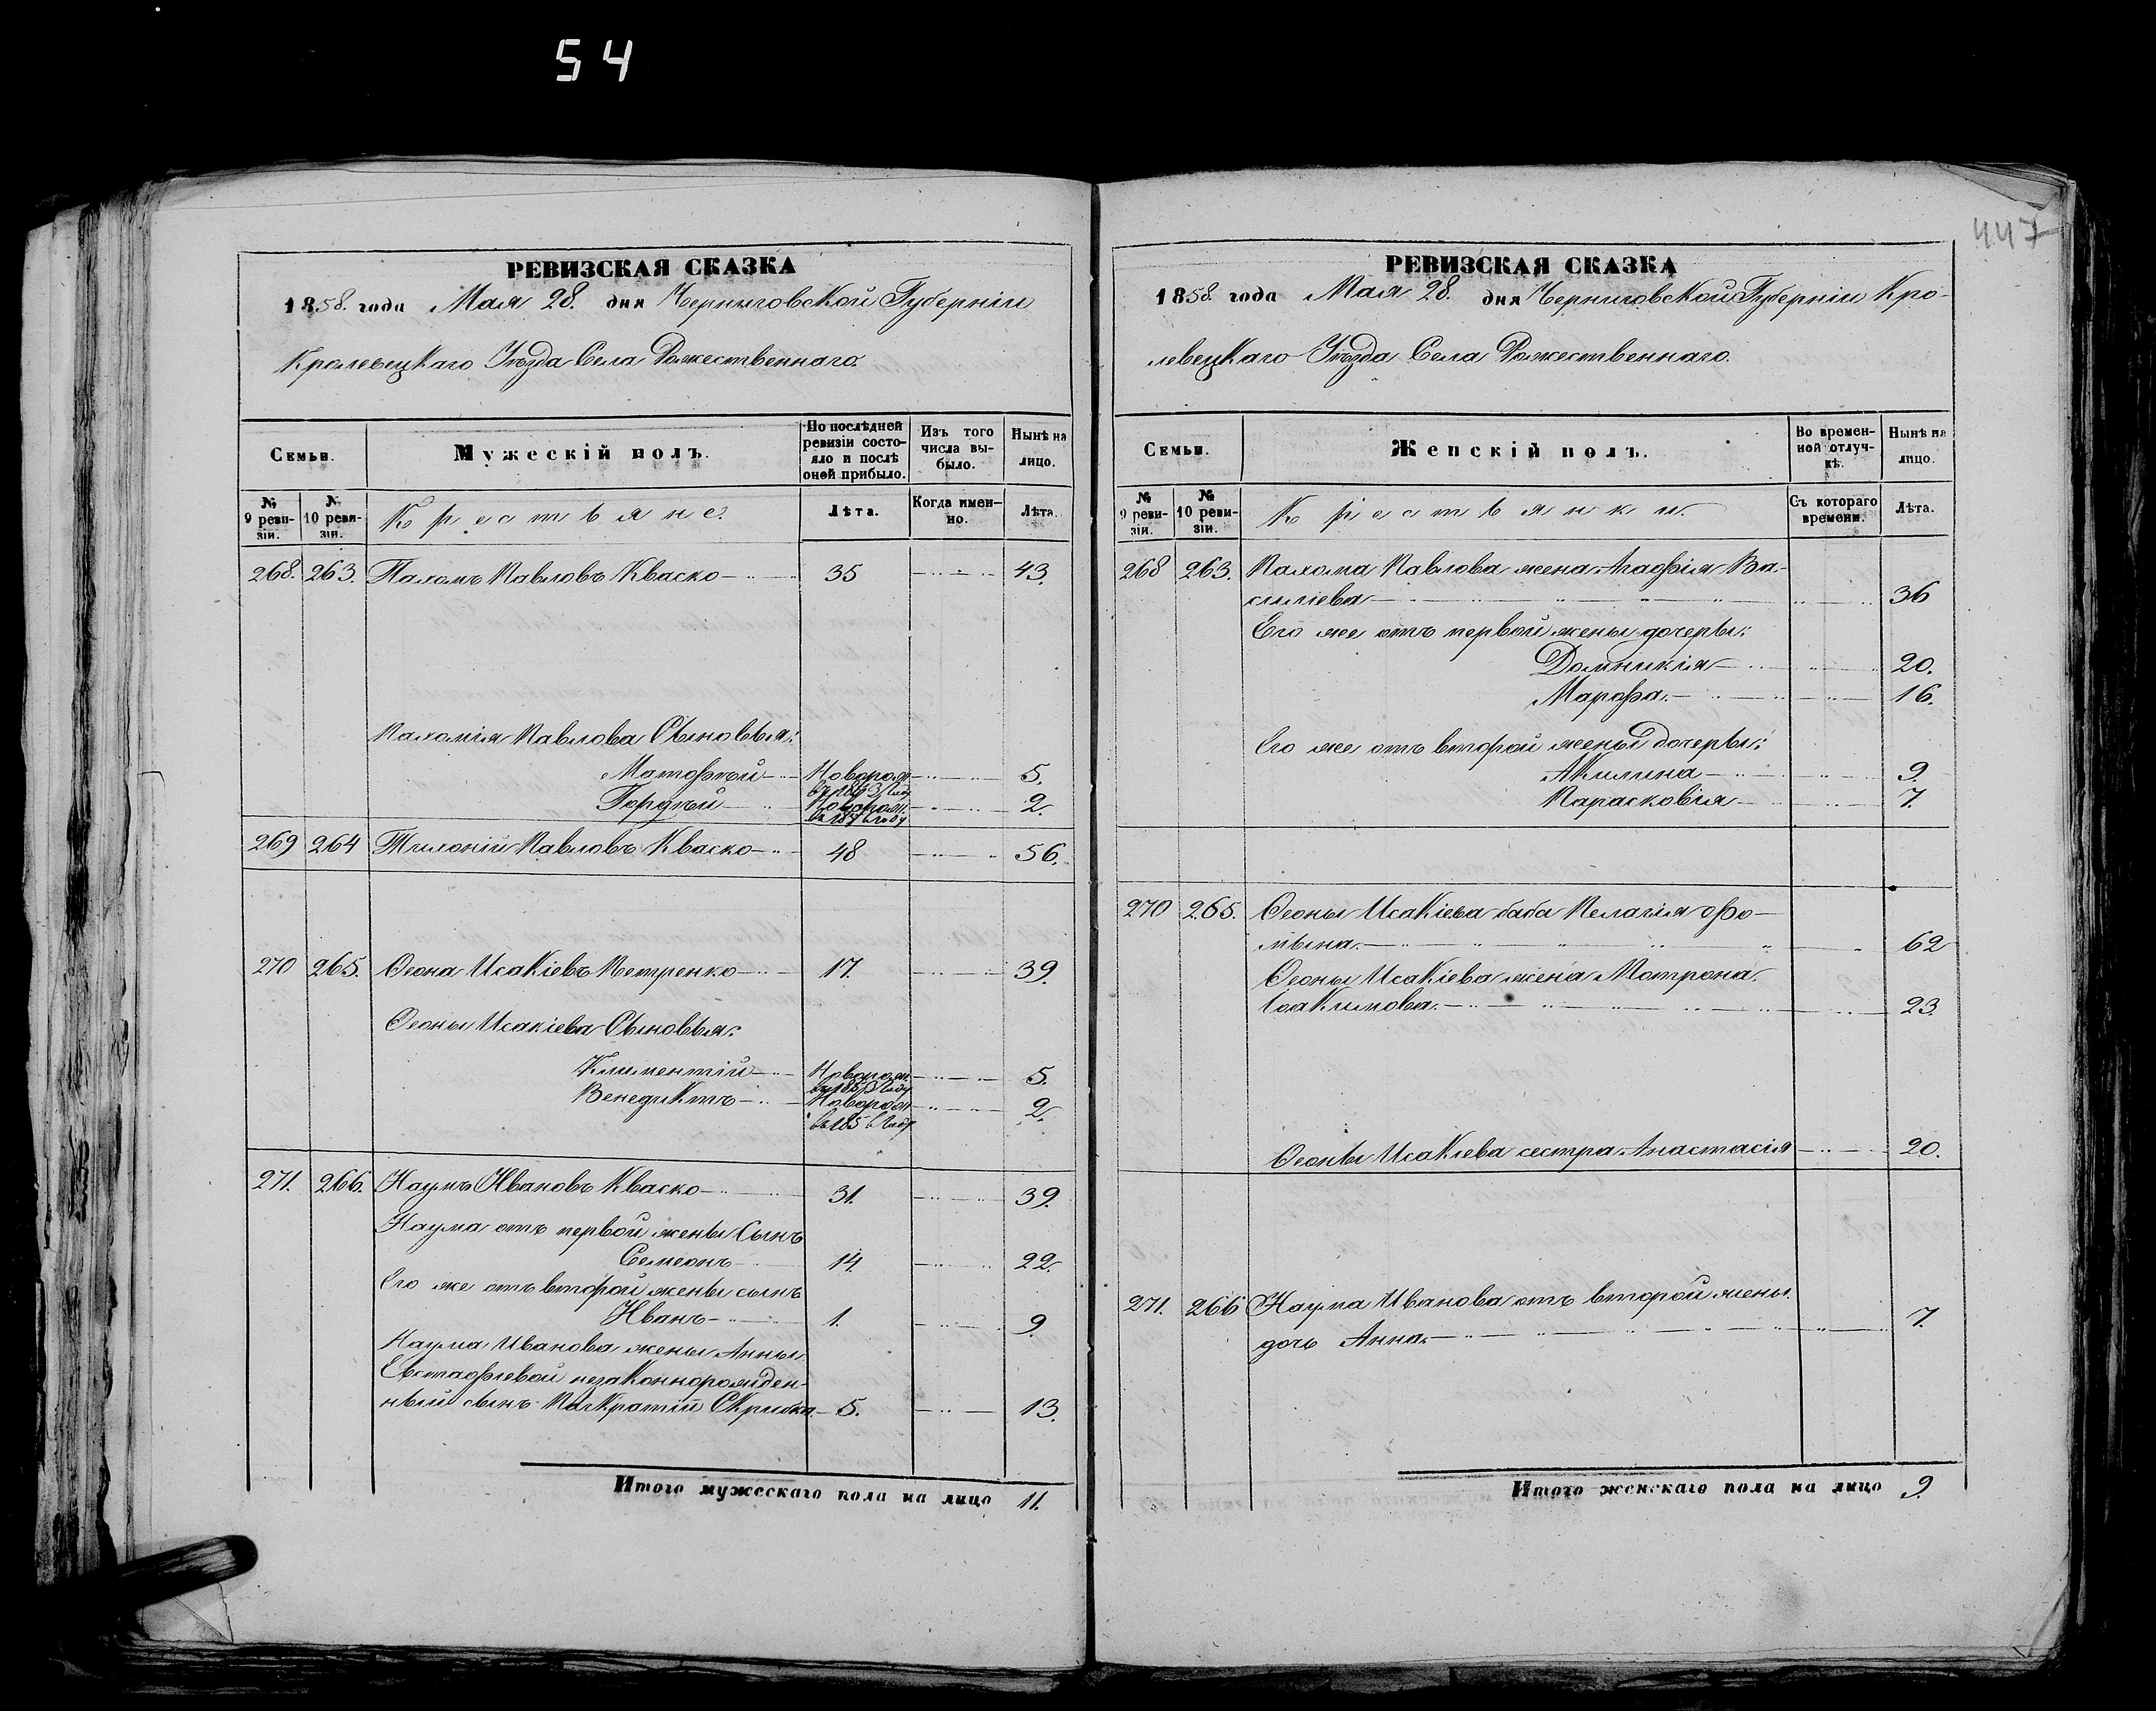 54
447
РЕВИЗСКАЯ СКАЗКА
1858. года Мая 28. дня Черниговской Губерніи
Кролевецкаго Уѣзда Села Рожественнаго.
Семьи.
Мужескій полъ.
По послѣдней ревизіи состояло и послѣ оной прибыло.
Изъ того числа выбыло.
Нынѣ на лицо.
№ 9 ревизіи.
№ 10 ревизіи.
Крестьяне.
Лѣта.
Когда именно.
Лѣта.
268. 263. Пахомъ Павловъ Кваско 35 43.
Пахомія Павлова Сыновья:
Матофѣй Новорож. въ 1853 году 5.
Гордѣй Новорож. въ 185 году 2.
269 264 Тихоній Павловъ Кваско 48 56.
270 265. Ѳеона Исакіевъ Петренко 17. 39.
Ѳеоны Исакіева Сыновья:
Климентій Новорож. въ 1853 году 5.
Венедиктъ Новорож. въ 185 году 2.
271. 266. Наумъ Ивановъ Кваско 31. 39.
Наума отъ первой жены Сынъ
Семеонъ 14. 22.
Его же отъ второй жены сынъ
Иванъ 1. 9.
Наума Иванова жены Анны
Евстафіевой незаконнорожден-
ный сынъ Панкратій 5. 13.
Итого мужескаго пола на лицо 11.
РЕВИЗСКАЯ СКАЗКА
1858. года Мая 28. дня Черниговской Губерніи Кро-
левецкаго Уѣзда Села Рожественнаго.
Семьи.
Женскій полъ.
Во временной отлучкѣ.
Нынѣ на лицо.
№ 9 ревизіи.
№ 10 ревизіи.
Крестьянки.
Съ котораго времени.
Лѣта.
268 263. Пахома Павлова жена Агафія Ва-
силіева 36
Его же отъ первой жены дочеры:
Домникія 20.
Марфа. 16.
Его же отъ второй жены дочеры:
Акилина 9.
Парасковія 7.
270 265. Ѳеоны Исакіева баба Пелагія Фо-
мына. 62
Ѳеоны Исакіева жена Мотрона
Іоакимова. 23.
Ѳеоны Исакіева сестра Анастасія 20.
271. 266 Наума Иванова отъ второй жены
дочь Анна. 7.
Итого женскаго пола на лицо 9.